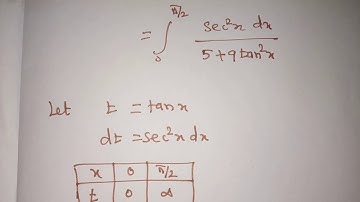 = ∫₀^{π/2} sec²x dx / (5+9tan²x)
Let t = tanx
dt = sec²x dx
x 0 π/2
t 0 ∞